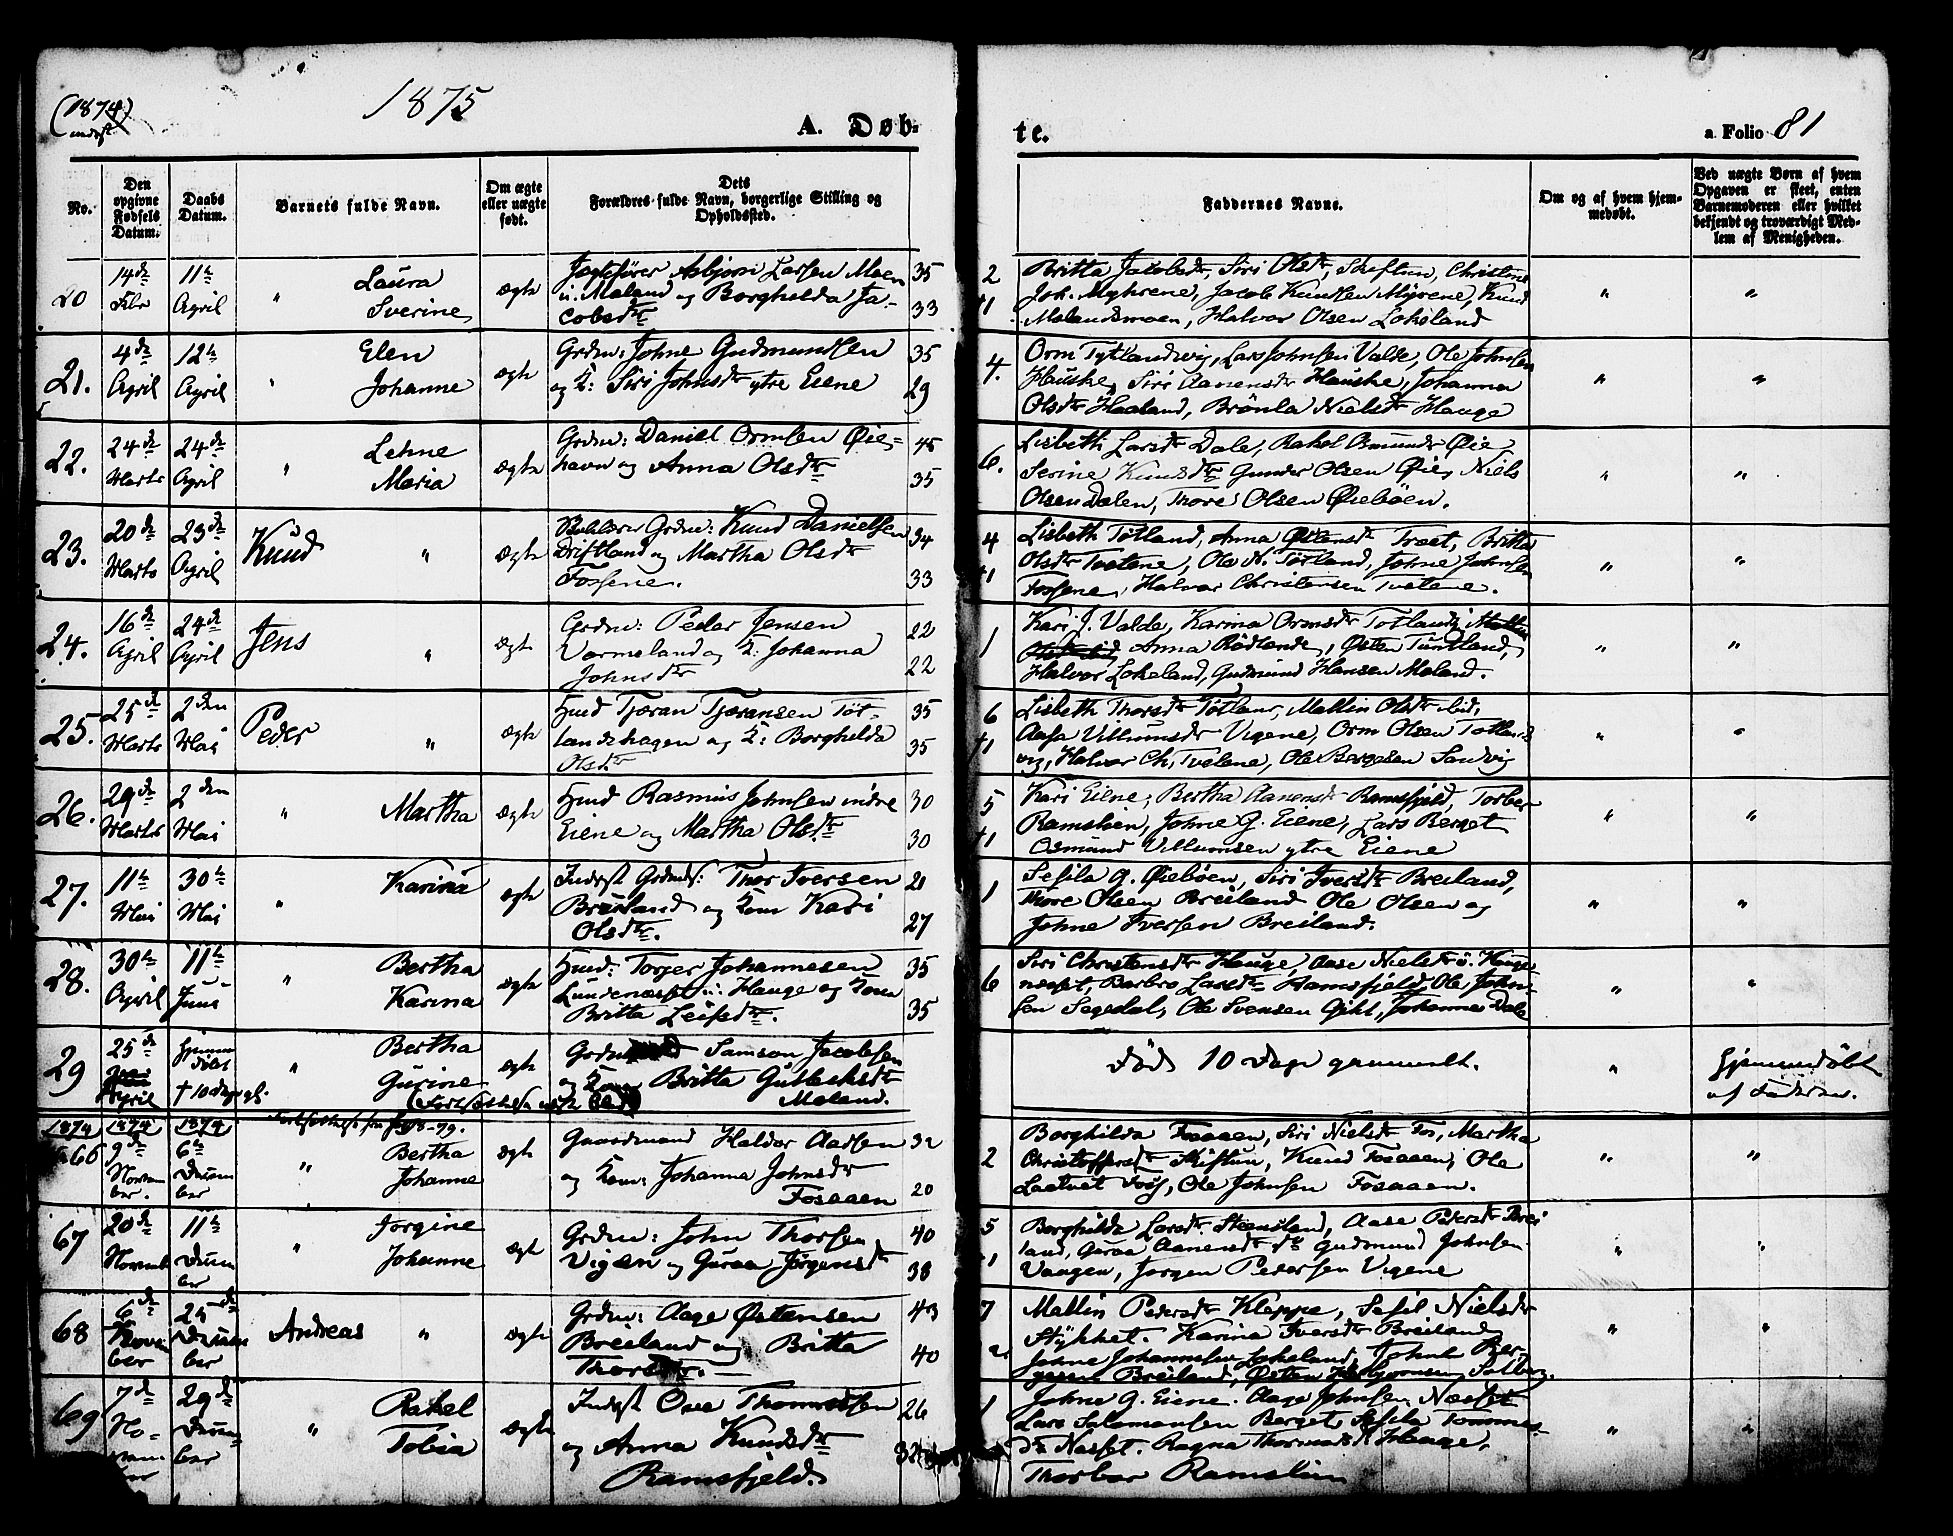 (1874)
nederst
1875
A. Døb-
te.
a. Folio 81
No.
Den opgivne Fødsels Datum.
Daabs Datum.
Barnets fulde Navn.
Om ægte eller uægte født.
Dets Forældres fulde Navn, borgerlige Stilling og Opholdssted.
Faddernes Navne.
Om og af hvem hjemmedøbt.
Ved uægte Børn af hvem Opgaven er skeet, enten Barnemoderen eller hvilket bekjendt og troværdigt Medlem af Menigheden.
20
14de Febr
11te April
" Laura Sverine
ægte
Asbjørn Larsen Moen
Maland og Borghilda Ja-
cobsdtr
35
33
2
+1
Britta Jacobsdtr, Siri Olsdtr, Skiftun, Christene
Joh. Myhrene, Jacob Knudsen Myrene, Knud
Malandsmoen, Halvor Olsen Lokeland
"
"
21.
4de April
12te April
" Elen Johanne
ægte
Grdm: Johne Gudmundsen
og K: Siri Johnsdtr ytre Eiene
35
29
4.
Orm Tytlandsvig, Lars Johnsen Valde, Ole Johnsen
Hauske, Siri Aanensdtr Hauske, Johanna
Olsdtr Haaland, Brønla Nielsdtr Hauge
"
"
22.
24de Marts
24de April
" Lehne Maria
ægte
Grdm: Daniel Ormsen Øie-
havn og Anna Olsdtr
45
35
6.
Lisbeth Larsdtr Dale, Rakel Osmundsdr Øie,
Serine Knudsdtr Gunder Olsen Øie, Niels
Olsen Dalen, Thore Olsen Øiebøen.
"
"
23.
20de Marts
23de April
Knud "
ægte
Grdm: Knud Danielsen
Driftland og Martha Olsdtr
Fossene.
34
33
4
+1
Lisbeth Tøtland, Anna Træet, Britta
Olsdtr Tvetene, Ole N. Tøtland, Johne Johnsen
Fossene, Halvor Christensen Tvetene.
"
"
24.
16de April
24de April
Jens "
ægte
Grdm: Peder Jensen
Varmeland og K: Johanna
Johnsdtr
22
22
1
Kari J. Valde, Karina Ormsdtr Totland,
Anna Rødland, Østen Tuntland,
Halvor Lokeland, Gudmund Hansen Maland.
"
"
25.
25de Marts
2den Mai
Peder "
ægte
Hmd Tjæran Tjæransen Tøt-
landshagen og K: Borghilda
Olsdtr
35
35
6
+1
Lisbeth Thorsdtr Tøtland, Mallin Olsdtr ibid,
Aasa Villumsdtr Vigene, Orm Olsen Totlands
vig, Halvor Ch. Tvetene, Ole Børgesen Sandvig
"
"
26.
29de Marts
2den Mai
" Martha
ægte
Hmd Rasmus Johnsen indre
Eiene og Martha Olsdtr
30
30
5
+1
Kari Eiene, Bertha Aanensdtr Ramsfjeld, Torber
Ramslien, Johne G. Eiene, Lars Berget
Osmund Villumsen ytre Eiene
"
"
27.
11te Mai
30te Mai
" Karina
ægte
Inderst Grdmds: Thor Iversen
Breiland og Kone Kari
Olsdtr.
21
27
1
Sesila G. Øiebøen, Siri Iversdtr Breiland,
Thore Olsen Breiland Ole Olsen og
Johne Iversen Breiland.
"
"
28.
30te April
11te Juni
" Bertha Karina
ægte
Hmd: Torger Johannesen
Lundenæsset u: Hauge og Kone
Britta Leifsdtr.
35
35
6
Siri Christensdtr Hauge, Aase Nielsdtr u. Hauge
næsset, Barbro Larsdtr Ramsfjeld, Ole John-
sen Segedal, Ole Svensen Gihl, Johanne Dale
"
"
29
25de April
Hjemmedøbt
† 10 dage gl.
" Bertha Gurine
ægte
Grdm Samson Jacobsen
og Kone Britta Gulleksdtr
Maland.
Død 10 Dage gammelt.
"
Hjemmedøbt
af Faderen.
1874
1874
1874
66
9de November.
6te December
" Bertha Johanne
ægte
Gaardmand Haldor Aadsen
og Kone: Johanna Johnsdtr
Fosaaen
32
20
2
Borghilda Fosaaen, Siri Nielsdtr Fos, Martha
Christoffersdtr Skiftun, Knud Fosaaen, Ole
Laatvet Fos, Ole Johnsen Fosaaen.
"
"
67
20de Novemb
11te December
" Jorgine Johanne
ægte
Grdm: John Thorsen
Vigen og Guraa Jørgensdtr
40
38
5
1
Borghilda Larsdtr Stensland, Aase Pedersdtr Brei
land, Guraa Aanensdtr do Gudmund Johnsen
Vaagen, Jorgen Pedersen Vigene
"
"
68
6de November
25de December
Andreas "
ægte
Grdm: Aage Østensen
Breiland og Britta
Thorsdtr.
43
40
7
2
Mallin Pedersdtr Kleppe, Sesil Nielsdtr
Stykket. Karina Iversdtr Breiland
Johne Johannesen Lokeland, Johne Bør-
gesen Breiland, Østen
69
7de November
29de December
" Rakel Tobia
ægte
Inderst Ove Thommesen
og Anna Knudsdtr
Ramsfjeld.
26
32
1
Johne G. Eiene. Aage Johnsen Næsset
Lars Salamonsen Berget, Sesila Tommes-
dtr Næsset. Ragna Thormodsd Hauge,
Thorber Ramslien
"
"